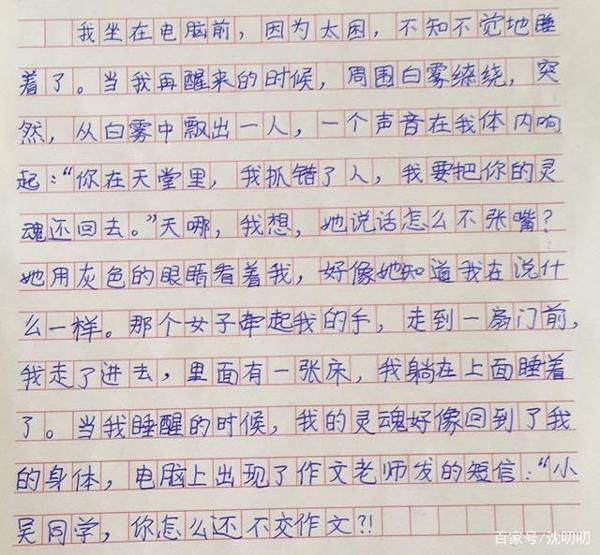 我坐在电脑前，因为太困，不知不觉地睡
着了。当我再醒来的时候，周围白雾缭绕，突
然，从白雾中飘出一人，一个声音在我体内响
起：“你在天堂里，我抓错了人，我要把你的灵
魂还回去。”天哪，我想，她说话怎么不张嘴？
她用灰色的眼睛看着我，好像她知道我在说什
么一样。那个女子牵起我的手，走到一扇门前，
我走了进去，里面有一张床，我躺在上面睡着
了。当我睡醒的时候，我的灵魂好像回到了我
的身体，电脑上出现了作文老师发的短信：“小
吴同学，你怎么还不交作文?!
百家号/沈叨叨